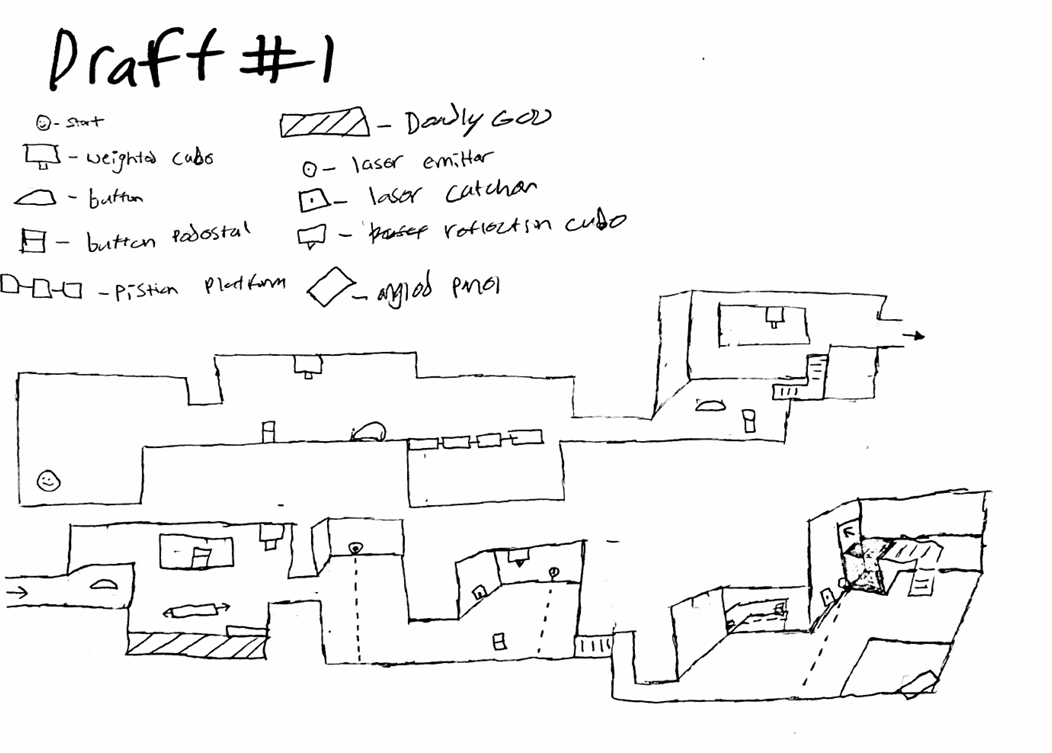 Draft #1
- start
- weighted cubo
- button
- button pedostal
- pistion platform
- Deadly Goo
- laser emittor
- laser catchor
- reflection cubo
- angled panol